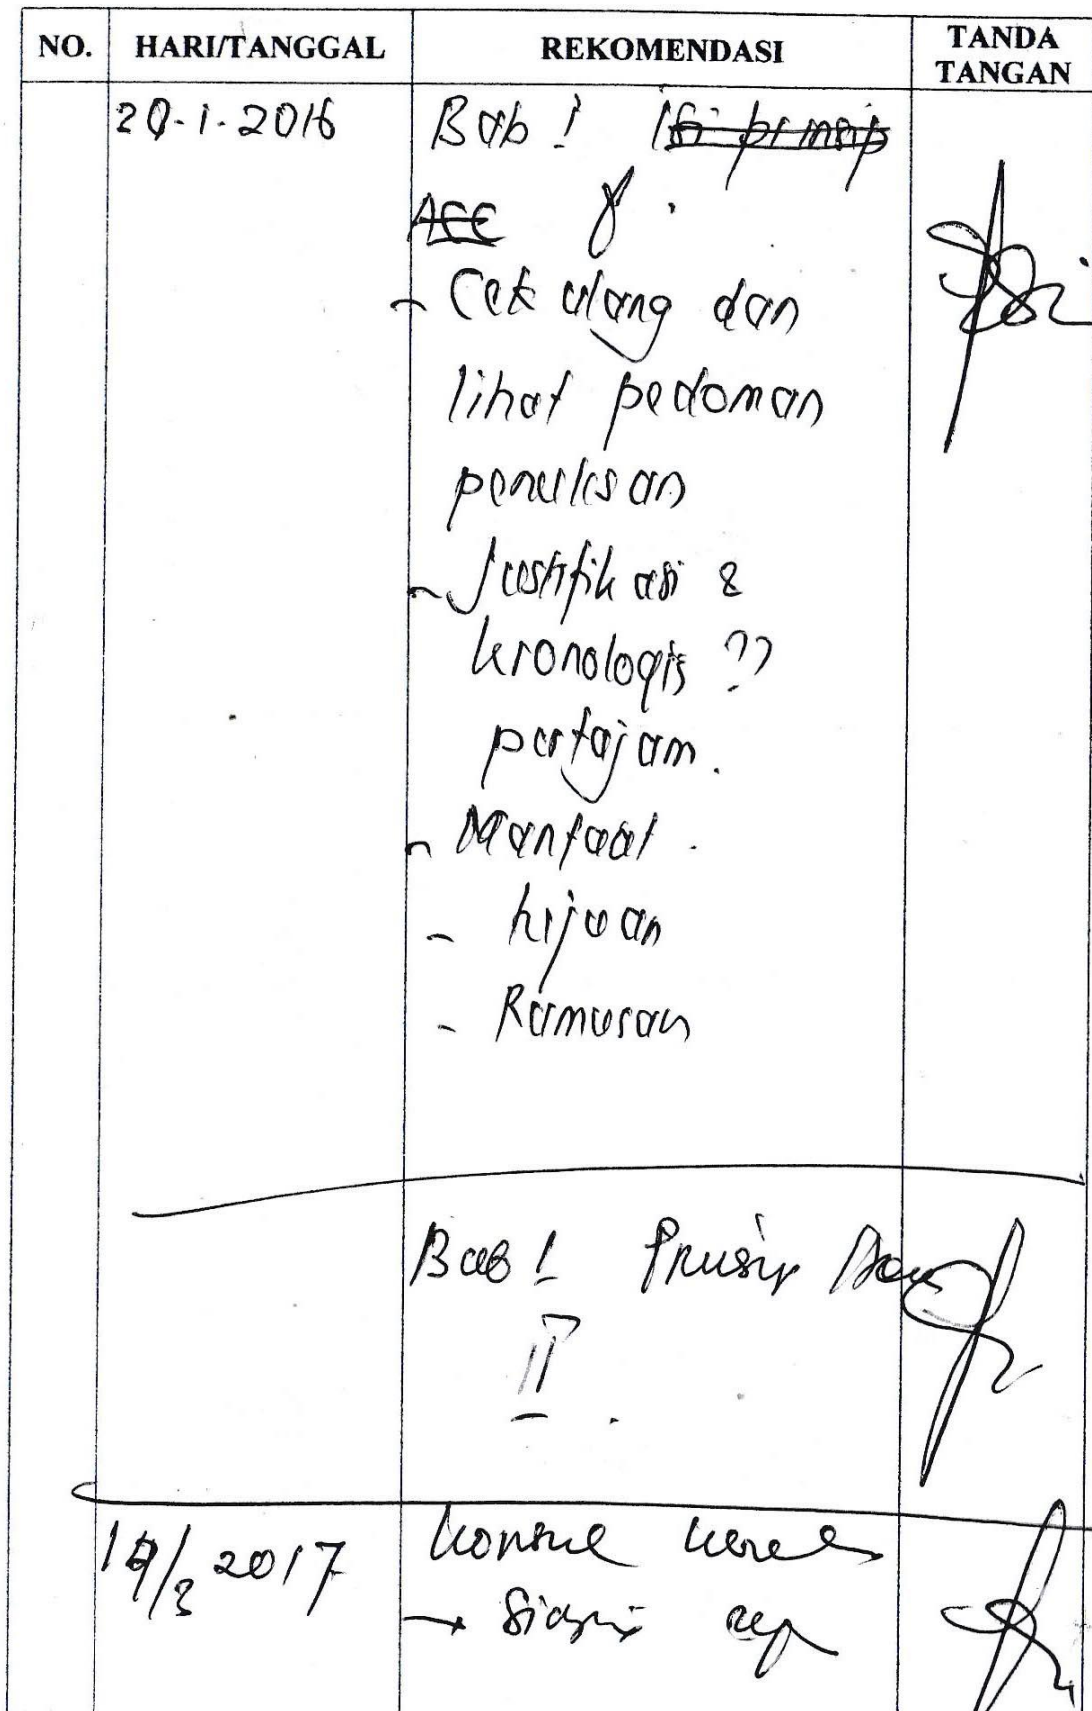 NO. HARI/TANGGAL REKOMENDASI TANDA TANGAN
20-1-2016 Bab I Isi prinsip
ACC
- Cek ulang dan
lihat pedoman
penulisan
- Justifikasi &
kronologis ??
pertajam.
- Manfaat.
- Tujuan
- Rumusan
Bab I Prinsip Acc
II
/3 2017 Konsul
→